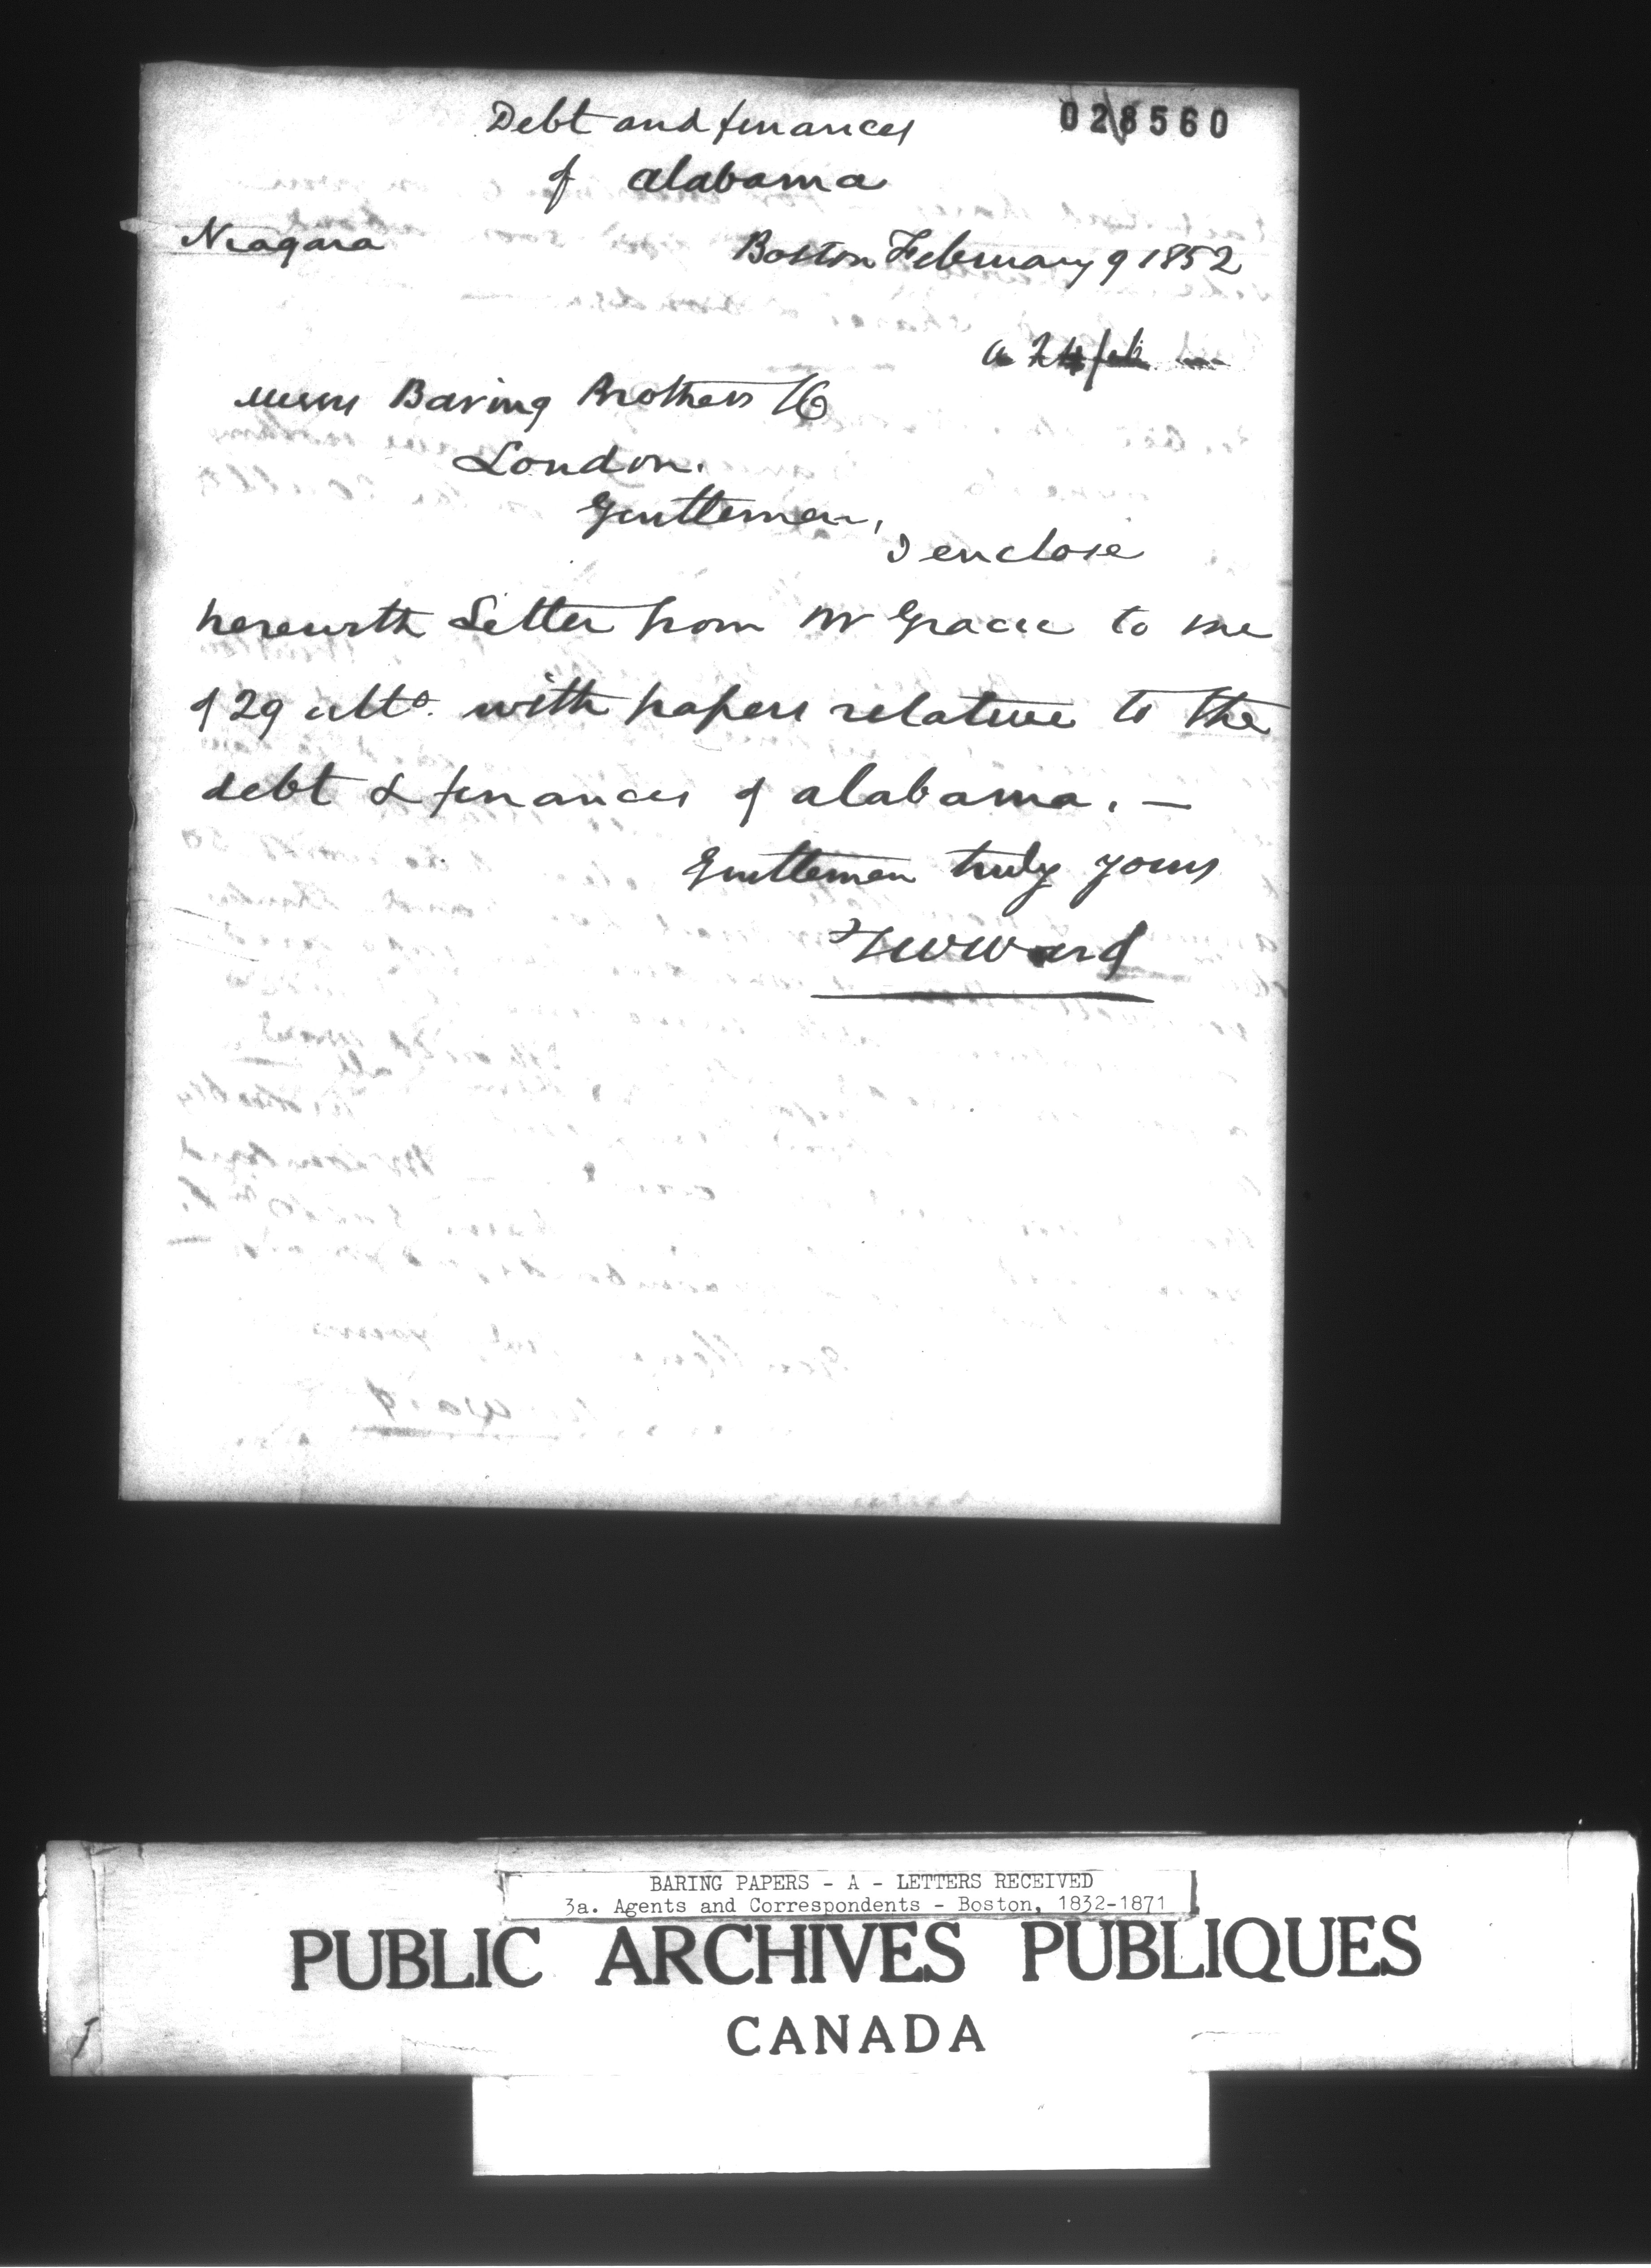 Debt and finances
028560
of Alabama
Niagara
Boston February 9 1852
a 24 feb
Messrs Baring Brothers & Co
London.
Gentlemen,
I enclose
herewith Letter from Mr Gracie to me
of 29 ulto. with papers relative to the
debt & finances of alabama. —
Gentlemen truly yours
T W Ward
BARING PAPERS - A - LETTERS RECEIVED
3a. Agents and Correspondents - Boston, 1832-1871
PUBLIC ARCHIVES PUBLIQUES
CANADA